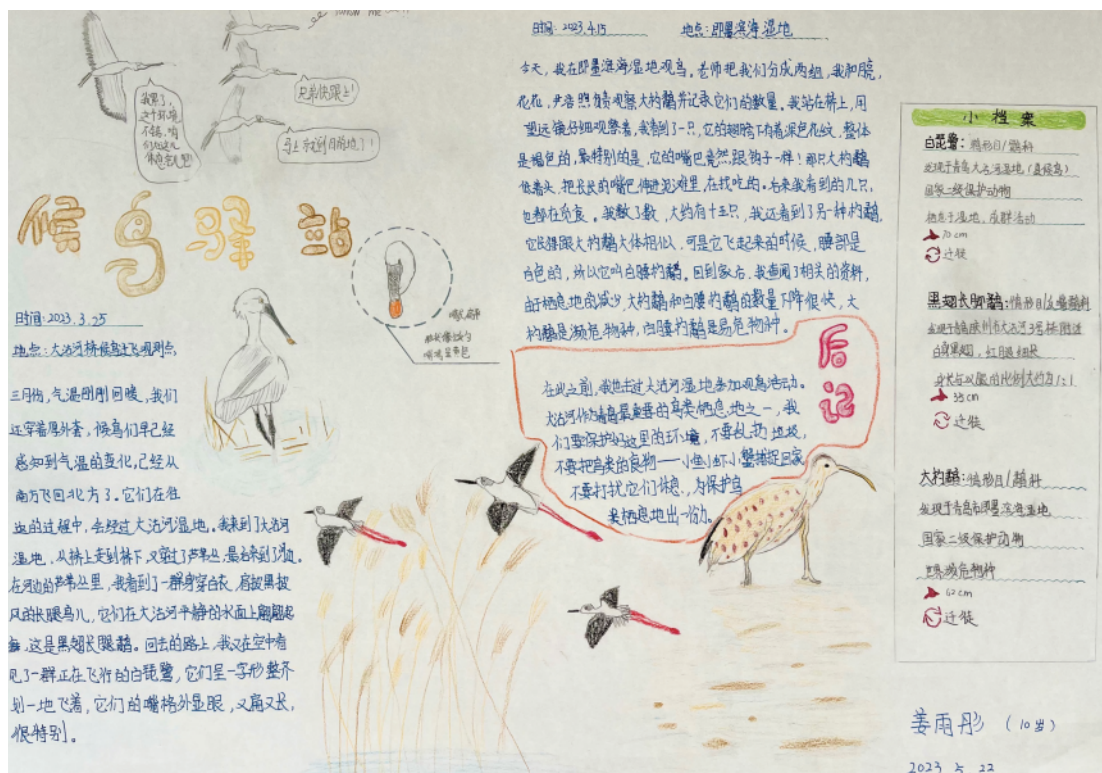 我累了,
这个环境
不错,咱
们在这儿
休息会儿吧
兄弟快跟上!
马上就到目的地了!
候鸟驿站
时间:2023.3.25
地点:大沽河桥候鸟迁飞观测点
三月份,气温刚刚回暖,我们
还穿着厚外套,候鸟们早已经
感知到气温的变化,已经从
南方飞回北方了。它们在往
返的过程中,会经过大沽河湿地。我来到了大沽河
湿地,从桥上走到桥下,又穿过了芦苇丛,最后来到了河边。
在河边的芦苇丛里,我看到了一群身穿白衣,肩披黑披
风的长腿鸟儿,它们在大沽河平静的水面上翩翩起
舞,这是黑翅长脚鹬。回去的路上,我又在空中看
见了一群正在飞行的白琵鹭,它们呈一字形整齐
划一地飞着,它们的嘴格外显眼,又扁又长,
很特别。
嘴长扁平
时间:2023.4.15 地点:即墨滨海湿地
今天,我在即墨滨海湿地观鸟。老师把我们分成两组,我和
花花,负责观察大杓鹬并记录它们的数量。我站在桥上,用
望远镜仔细观察着,我看到了一只,它的翅膀下有着深色花纹,整体
是褐色的,最特别的是,它的嘴巴竟然跟钩子一样!那只大杓鹬
低着头,把长长的嘴巴伸进泥滩里,在找吃的。后来我看到的几只,
也都在觅食。我数了数,大约有十五只,我还看到了另一种杓鹬,
它长得跟大杓鹬大体相似,可是它飞起来的时候,腰部是
白色的,所以它叫白腰杓鹬。回到家后,我查阅了相关的资料,
由于栖息地的减少,大杓鹬和白腰杓鹬的数量下降很快,大
杓鹬是濒危物种,白腰杓鹬是易危物种。
后记
在此之前,我也去过大沽河湿地参加观鸟活动。
大沽河作为青岛最重要的鸟类栖息地之一,我
们要保护好这里的环境,不要乱扔垃圾,
不要把鸟类的食物——小鱼小虾小蟹捕捉回家
不要打扰它们休息,为保护鸟
类栖息地出一份力。
小档案
白琵鹭:鹈形目/鹮科
发现于青岛大沽河湿地(夏候鸟)
国家二级保护动物
栖息于湿地,成群活动
70cm
迁徙
黑翅长脚鹬:鸻形目/反嘴鹬科
发现于青岛胶州市大沽河3号桥附近
白身黑翅,红腿细长
身长与双腿的比例大约为1:1
35cm
迁徙
大杓鹬:鸻形目/鹬科
发现于青岛市即墨滨海湿地
国家二级保护动物
世界濒危物种
62cm
迁徙
姜雨彤(10岁)
2023.5.22